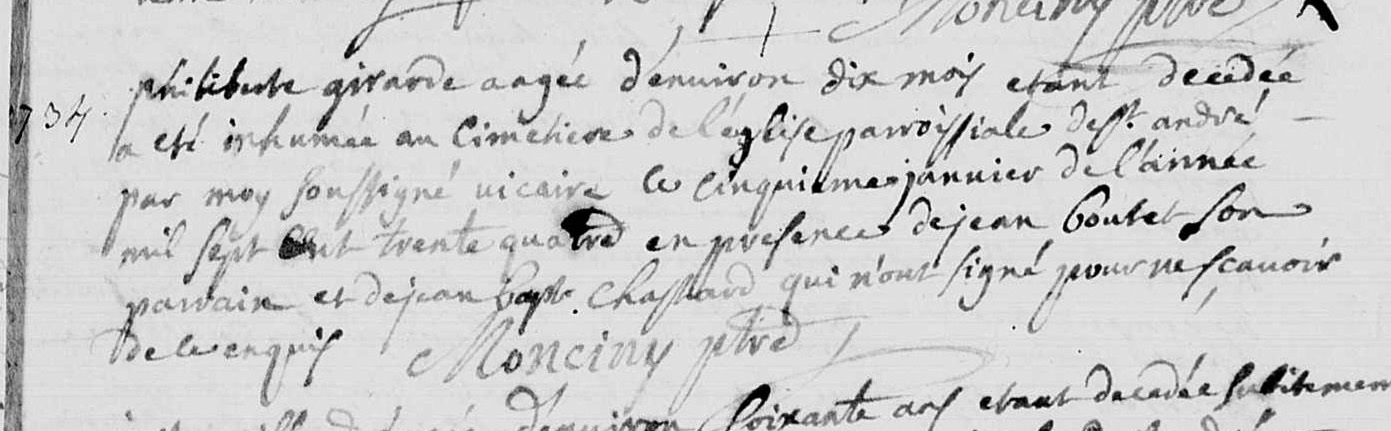 Monciny ptre
1734. philiberte girarde aagée d'environ dix mois etant decedée
a eté inhumée au Cimetiere de l'église parroissiale de st. andré
par moy soussigné vicaire le cinquieme janvier de l'année
mil sept cent trente quatre en presence de jean boutet son
parrain et de jean bapt. Chassard qui n'ont signé pour ne scavoir
de ce enquis Monciny ptre
d'environ soixante ans etant decedée subitement